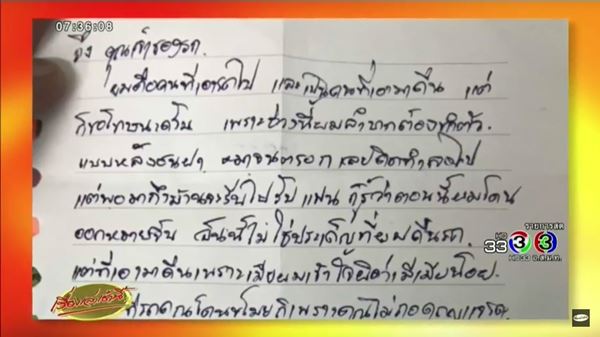 07:36:08
ถึง คุณเจ้าของรถ
ผมคือคนที่เอารถไป และเป็นคนที่เอามาคืน แต่
ก็ขอโทษนะครับ เพราะช่วงนี้ผมลำบากต้องทำตัว
แบบหลังชนฝา หมาจนตรอก เลยคิดทำลงไป
แต่พอมาถึงบ้านจะรีบไปรับแฟน ก็รู้ว่าตอนนี้ผมโดน
ออกหมายจับ อันนี้ไม่ใช่ประเด็นที่ผมคืนรถ
แต่ที่เอามาคืนเพราะเมียผมเข้าใจผิดว่ามีเมียน้อย
ที่รถคุณโดนขโมยก็เพราะคุณไม่ถอดกุญแจรถ
รายการสด
HD
33 3
HD33 อ.ส.ม.ท.
เรื่องเล่าเช้านี้